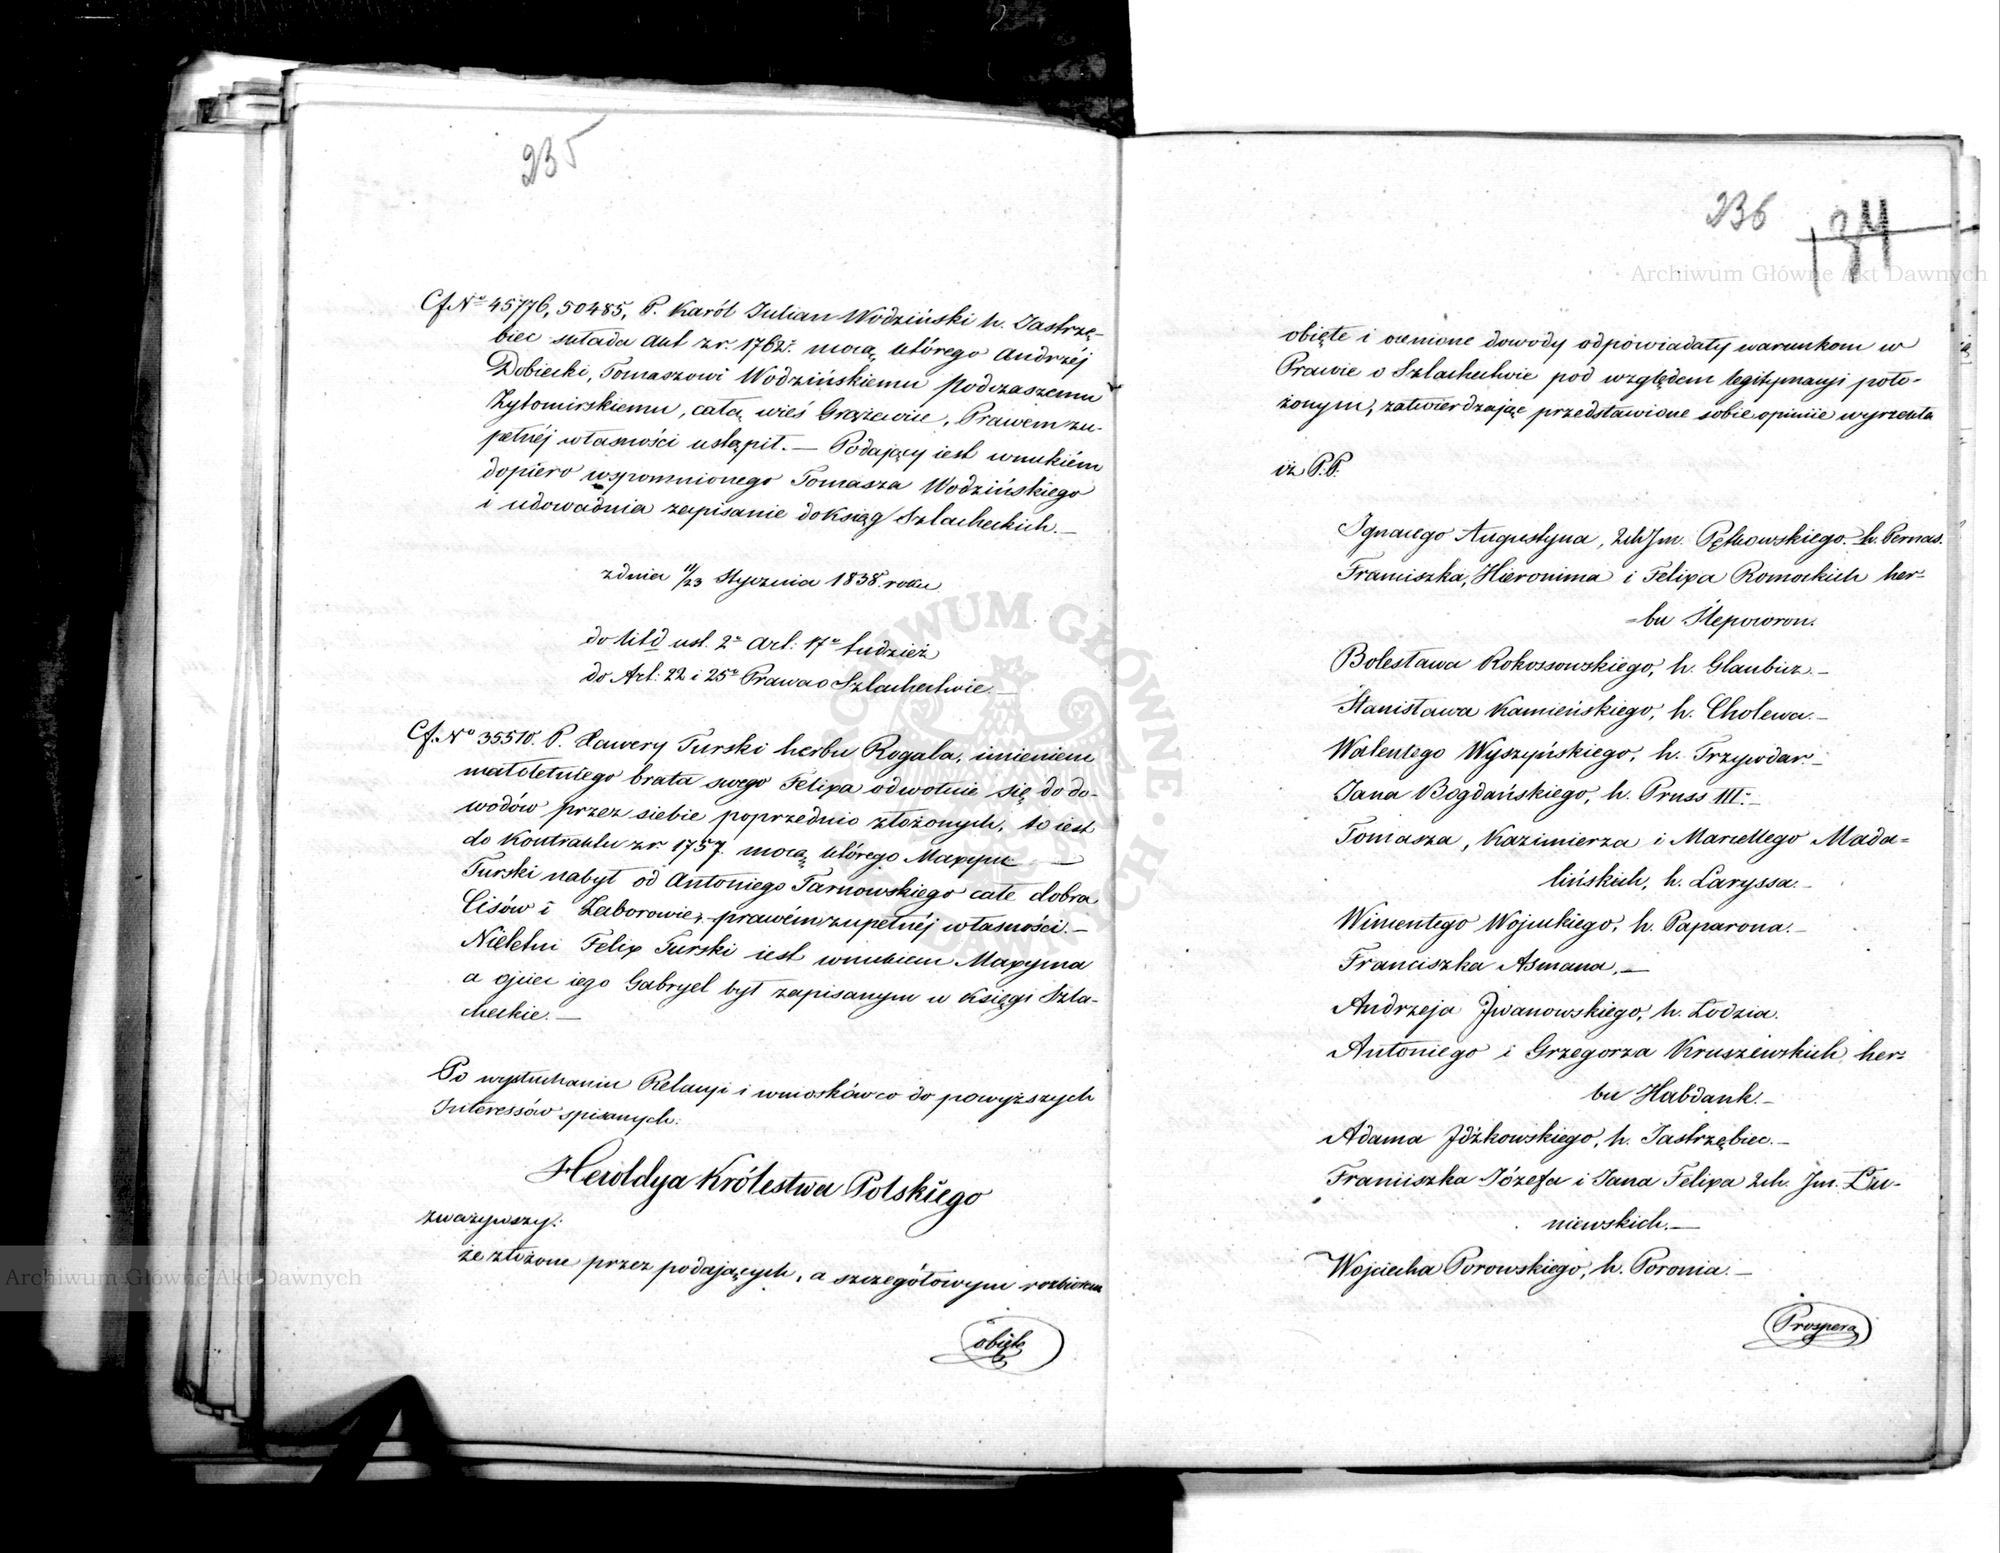 235
Cf. Nº 45776, 50485, P. Karól Julian Wodziński h. Jastrzę-
biec składa akt z r. 1762. mocą którego Andrzéj
Dobiecki, Tomaszowi Wodzińskiemu Podczaszemu
Żytomirskiemu, całą wieś Grążewice, Prawem zu-
pełnéj własności ustąpił. — Podający iest wnukiém
dopiéro wspomnionego Tomasza Wodzińskiego
i udowadnia zapisanie do Ksiąg Szlacheckich. —
z dnia 11/23 Stycznia 1838 roku
do lit d ust. 2º Art: 17º tudzież
do Art: 22 i 25º Prawa o Szlachectwie. —
Cf. Nº 35510. P. Xawery Turski herbu Rogala, imieniem
małoletniego brata swego Felixa odwołuie się do do-
wodów przez siebie poprzednio złożonych, to iest
do Kontraktu z r. 1757. mocą którego Maxym —
Turski nabył od Antoniego Tarnowskiego całe dobra
Cisów i Zaborowie, prawém zupełnéj własności. —
Nieletni Felix Turski iest wnukiem Maxyma
a ojciec iego Gabryel był zapisanym w Księgi Szla-
checkie. —
Po wysłuchaniu Relacyi i wniosków co do powyższych
Interessów spisanych:
Heroldya Królestwa Polskiego
zważywszy:
że złożone przez podających, a szczegółowym rozbiorem
obięte
236
134
obięte i ocenione dowody odpowiadały warunkom w
Prawie o Szlachectwie pod względem legitymacyi poło-
żonym, zatwierdzając przedstawione sobie opinie wyrzekła
iż P.P.
Ignacego Augustyna, 2ch Im. Pętkowskiego h. Pernus.
Franciszka, Hieronima i Felixa Romockich her-
bu Ślepowron.
Bolesława Rokossowskiego, h. Glaubicz. —
Stanisława Kamieńskiego, h. Cholewa. —
Walentego Wyszyńskiego, h. Trzywdar. —
Jana Bogdańskiego, h. Pruss III: —
Tomasza, Kazimierza i Marcellego Mada-
lińskich, h. Laryssa. —
Wincentego Wojuckiego, h. Paparona. —
Franciszka Asmana, —
Andrzeja Iwanowskiego, h. Łodzia.
Antoniego i Grzegorza Kruszewskich her-
bu Habdank. —
Adama Idźkowskiego, h. Jastrzębiec. —
Franciszka Józefa i Jana Felixa 2ch. Im. Łu-
niewskich. —
Wojciecha Porowskiego, h. Poronia. —
Prospera
Archiwum Główne Akt Dawnych
Archiwum Główne Akt Dawnych
ARCHIWUM GŁÓWNE AKT DAWNYCH